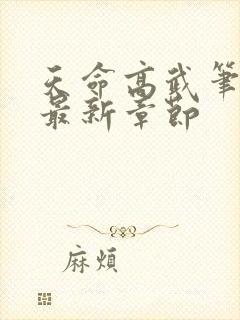 天命高武笔
最新章節
麻煩